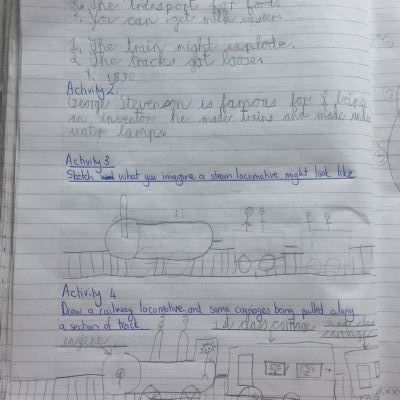 2. The transport for food.
3. You can get milk easier.
1. The train might explode.
2 The tracks got loose.
1830
Activity 2.
George Stevenson is famous for being
an inventor he made trains and made
water lamps.
Activity 3
Sketch what you imagine a steam locomotive might look like
Activity 4
Draw a railway locomotive and some carriages being pulled along
a section of track.
engine
1st class carriage
carriage